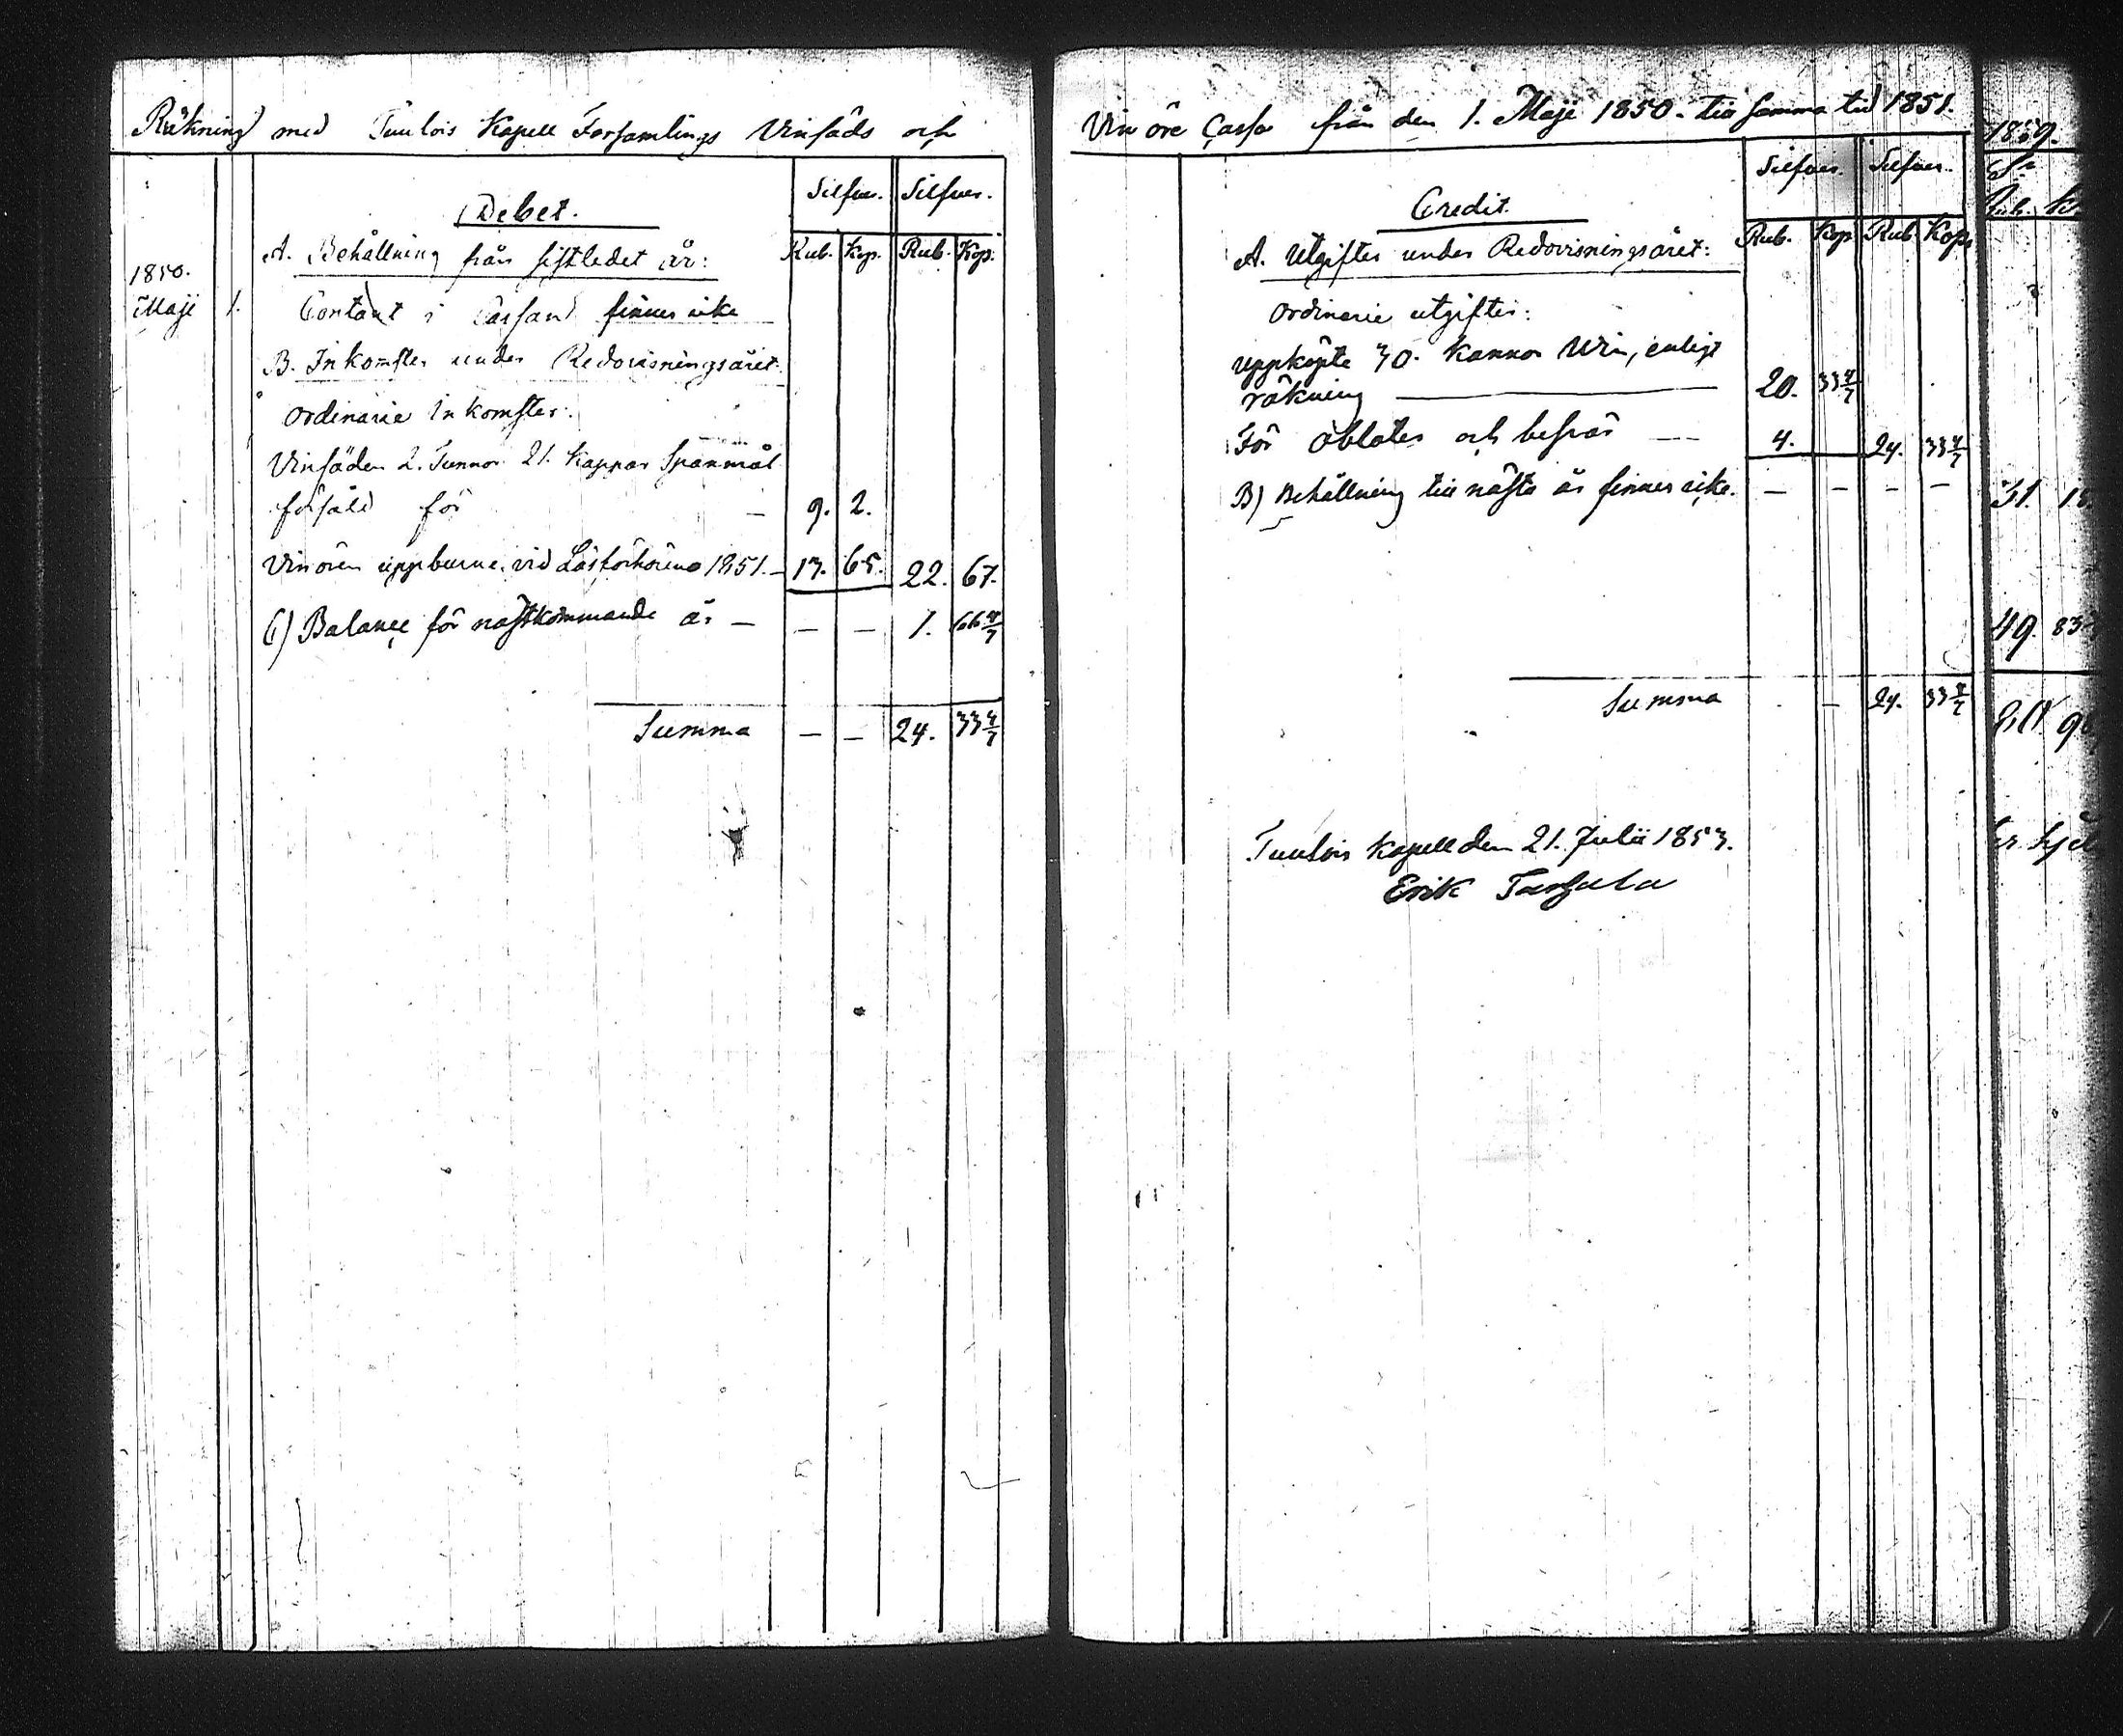 Räkning med Tuulois Kapell Församlings Vinsäds och
Debet.
Silfver. Silfver.
Rub. Kop. Rub. Kop.
1850.
Maji 1.
A. Behållning från sistledet år:
Contant i Cassan finnes icke
B. Inkomster under Redovisningsåret.
Ordinarie Inkomster:
Vinsäden 2. Tunnor 21. Kappar Spanmål
försåld för — 9. 2.
Vinören uppburne vid Läsförhören 1851. — 13. 65. 22. 67.
C) Balance för nästkommande år — — — 1. 66 4/7
Summa — — 24. 33 4/7
Vin öre Cassa från den 1. Maji 1850. till samma tid 1851.
Credit.
Silfver. Silfver.
Rub. Kop. Rub. Kop.
A. Utgifter under Redovisningsåret:
Ordinarie utgifter:
uppköpte 30. Kannor Win, enligt
räkning — 20. 33 4/7
För oblater och besvär — 4. 24. 33 4/7
B) Behållning till nästa år finnes icke. — — — —
Summa — 24. 33 4/7
Tuulois Kapell den 21. Julii 1853.
Erik
1859.
31. 18
49. 83